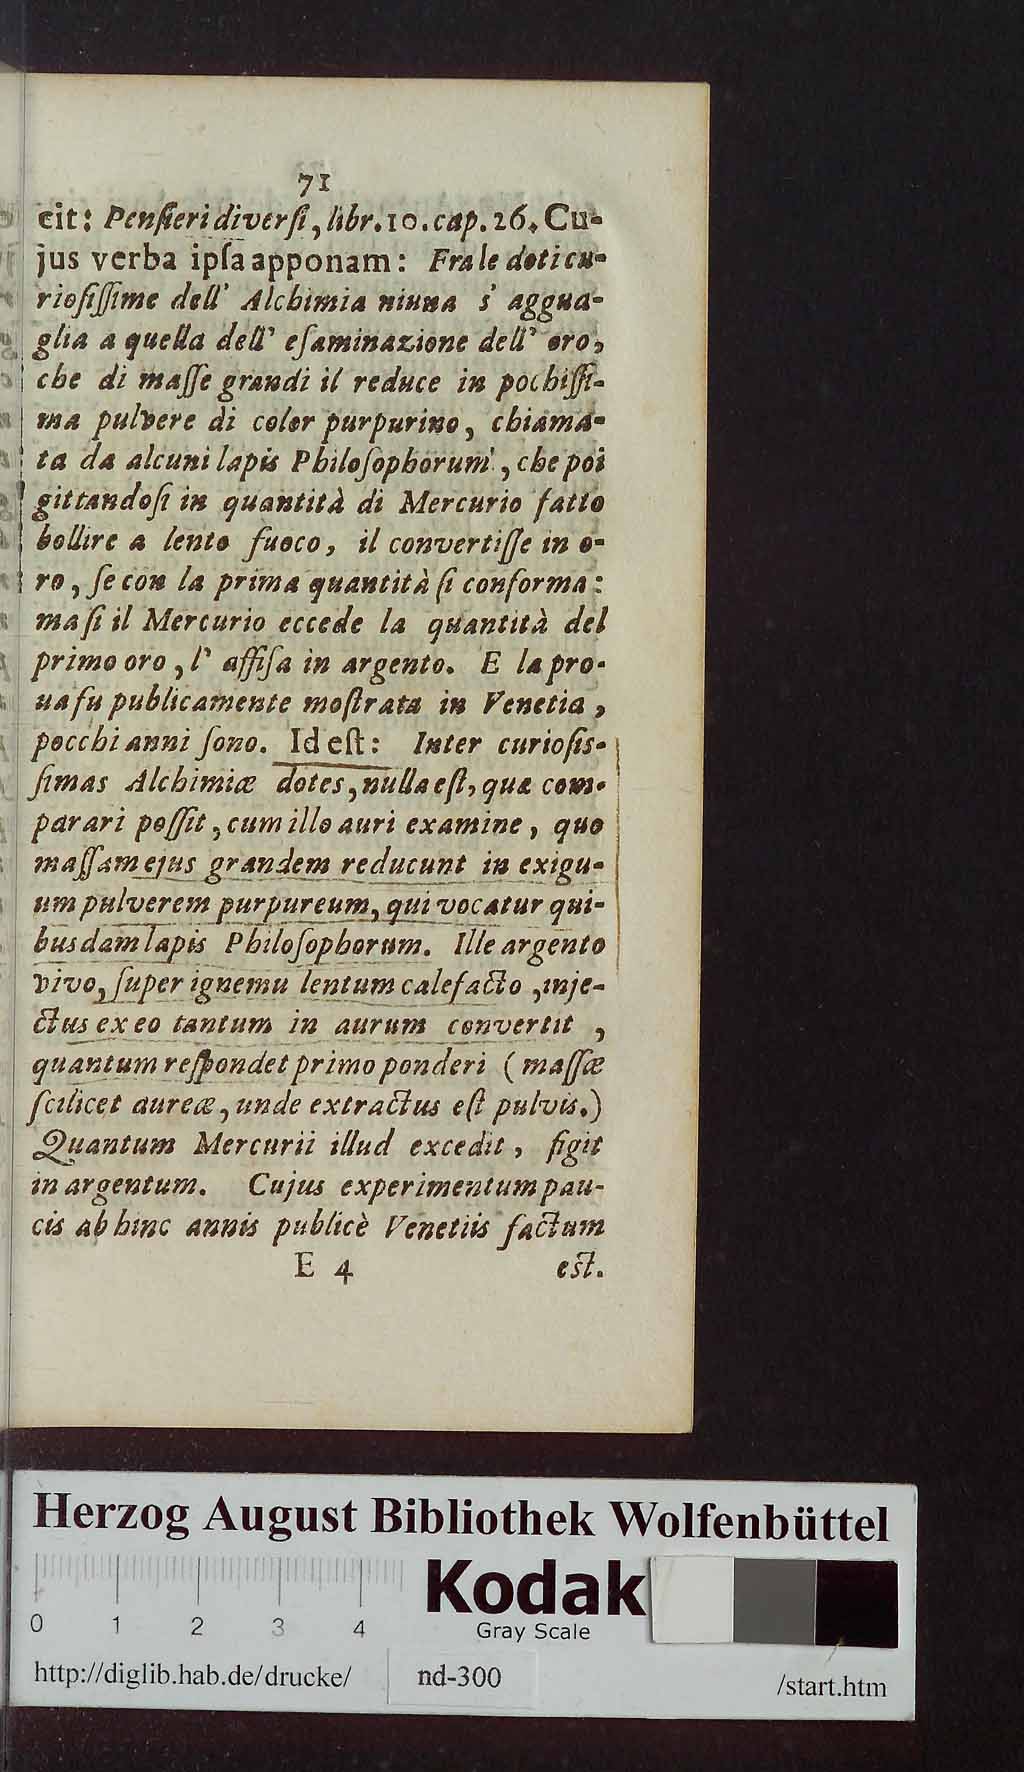 71
cit: Penſieri diverſi, libr. 10. cap. 26. Cu-
jus verba ipſa apponam: Fra le doti cu-
rioſiſſime dell' Alchimia niuna s' aggua-
glia a quella dell' eſaminazione dell' oro,
che di maſſe grandi il reduce in pochiſſi-
ma pulvere di color purpurino, chiama-
ta da alcuni lapis Philoſophorum, che poi
gittandoſi in quantità di Mercurio fatto
bollire a lento fuoco, il convertiſſe in o-
ro, ſe con la prima quantità ſi conforma:
ma ſi il Mercurio eccede la quantità del
primo oro, l' affiſa in argento. E la pro-
ua fu publicamente moſtrata in Venetia,
pocchi anni ſono. Id eſt: Inter curioſis-
ſimas Alchimiæ dotes, nulla eſt, quæ com-
parari poſſit, cum illo auri examine, quo
maſſam ejus grandem reducunt in exigu-
um pulverem purpureum, qui vocatur qui-
busdam lapis Philoſophorum. Ille argento
vivo, ſuper ignemu lentum calefacto, inje-
ctus ex eo tantum in aurum convertit,
quantum reſpondet primo ponderi (maſſæ
ſcilicet aureæ, unde extractus eſt pulvis.)
Quantum Mercurii illud excedit, figit
in argentum. Cujus experimentum pau-
cis ab hinc annis publicè Venetiis factum
E 4 est.
Herzog August Bibliothek Wolfenbüttel
0 1 2 3 4
Kodak
Gray Scale
http://diglib.hab.de/drucke/ nd-300 /start.htm